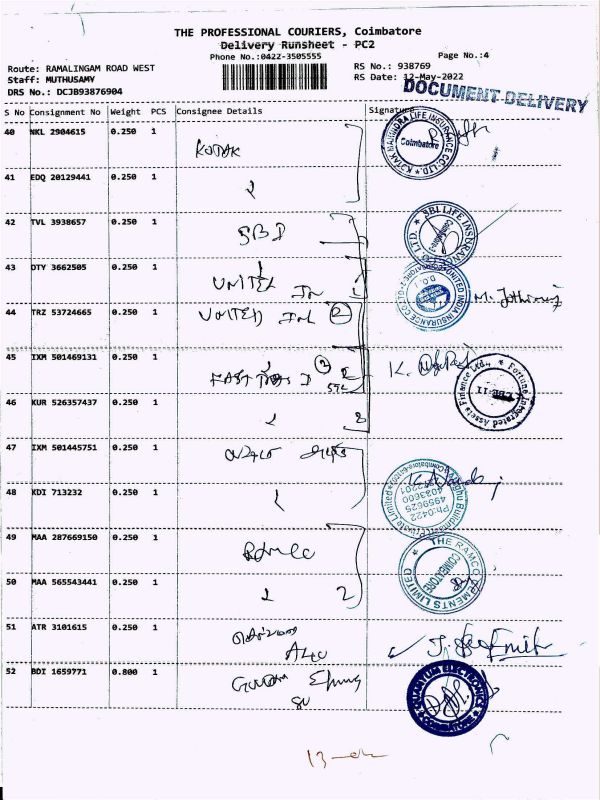 THE PROFESSIONAL COURIERS, Coimbatore
Delivery Runsheet - PC2
Phone No.:0422-3505555
Page No.:4
Route: RAMALINGAM ROAD WEST
RS No.: 938769
Staff: MUTHUSAMY
RS Date: 12-May-2022
DRS No.: DCJB93876904
DOCUMENT-DELIVERY
S No Consignment No Weight PCS Consignee Details Signature
40 NKL 2904615 0.250 1
KOTAK
KOTAK MAHINDRA LIFE INSURANCE CO. LTD.
Coimbatore
41 EDQ 20129441 0.250 1
2
42 TVL 3938657 0.250 1
SBI
SBI LIFE INSURAN
43 DTY 3662505 0.250 1
UNITED In
UNITED INDIA INSURANCE CO LTD
44 TRZ 53724665 0.250 1
UNITED Ind 2
45 IXM 501469131 0.250 1
K.
Fortune Integrated Assets Finance Ltd.
46 KUR 526357437 0.250 1
47 IXM 501445751 0.250 1
48 KDI 713232 0.250 1
Private Limited
Ph:0422
4959625
4033600
49 MAA 287669150 0.250 1
Ramco
THE RAMCO CEMENTS LIMITED
COIMBATORE
50 MAA 565543441 0.250 1
2
51 ATR 3101615 0.250 1
52 BDI 1659771 0.800 1
QUANTUM ELECTRONICS
COIMBATORE